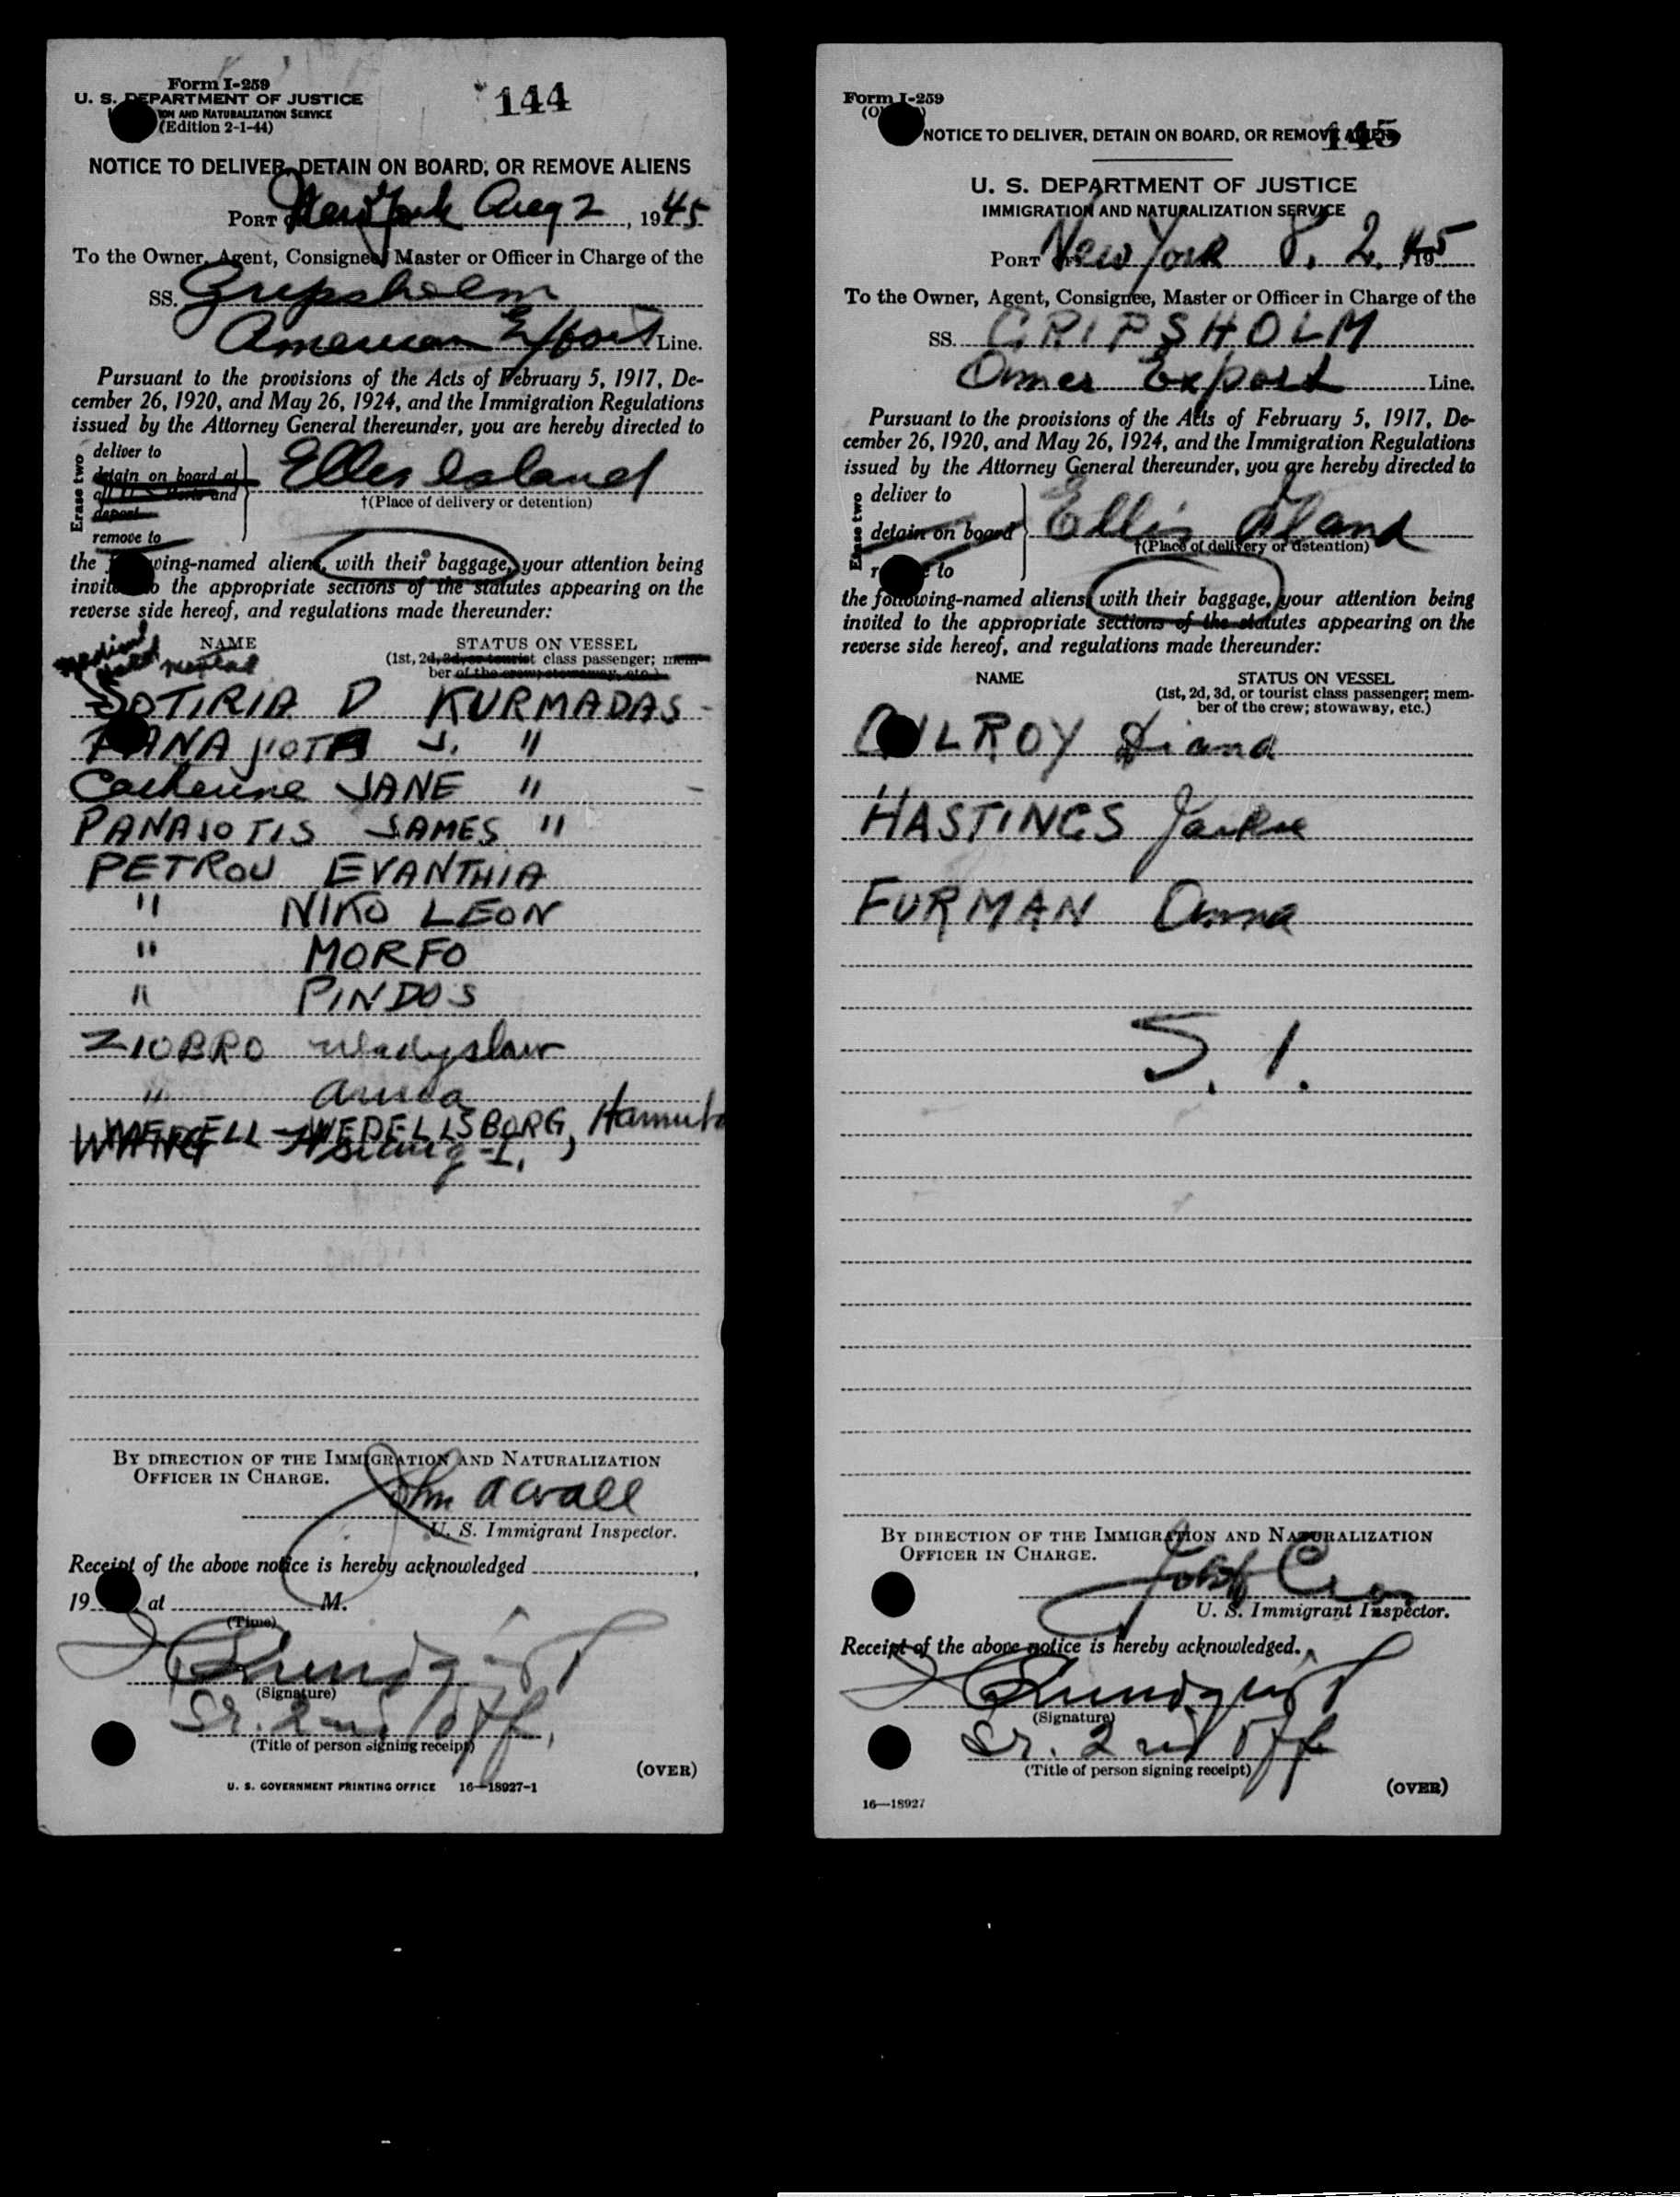 Form I-259
U. S. DEPARTMENT OF JUSTICE
ION AND NATURALIZATION SERVICE
(Edition 2-1-44)
144
NOTICE TO DELIVER, DETAIN ON BOARD, OR REMOVE ALIENS
PORT New York Aug 2, 1945
To the Owner, Agent, Consignee, Master or Officer in Charge of the
SS. Gripsholm
American Export Line.
Pursuant to the provisions of the Acts of February 5, 1917, De-
cember 26, 1920, and May 26, 1924, and the Immigration Regulations
issued by the Attorney General thereunder, you are hereby directed to
Erase two
deliver to
detain on board at
all U. S. Ports and
deport
remove to
Ellis Island
†(Place of delivery or detention)
the following-named aliens, with their baggage, your attention being
invited to the appropriate sections of the statutes appearing on the
reverse side hereof, and regulations made thereunder:
NAME
STATUS ON VESSEL
(1st, 2d, 3d, or tourist class passenger; mem-
ber of the crew; stowaway, etc.)
medical
mental
SOTIRIA D KURMADAS
PANAJIOTA J. "
Catherine JANE "
PANAJOTIS JAMES "
PETROU EVANTHIA
" NIKO LEON
" MORFO
" PINDOS
ZIOBRO Wladyslaw
" Aniela
WEDELLSBORG,
BY DIRECTION OF THE IMMIGRATION AND NATURALIZATION
OFFICER IN CHARGE.
John
U. S. Immigrant Inspector.
Receipt of the above notice is hereby acknowledged
19 at M.
(Time)
Lundquist
(Signature)
Sr. 2nd Off.
(Title of person signing receipt)
(OVER)
U. S. GOVERNMENT PRINTING OFFICE 16—18927-1
Form I-259
145
NOTICE TO DELIVER, DETAIN ON BOARD, OR REMOVE ALIENS
U. S. DEPARTMENT OF JUSTICE
IMMIGRATION AND NATURALIZATION SERVICE
PORT OF New York 8. 2. 1945
To the Owner, Agent, Consignee, Master or Officer in Charge of the
SS. GRIPSHOLM
Amer Export Line.
Pursuant to the provisions of the Acts of February 5, 1917, De-
cember 26, 1920, and May 26, 1924, and the Immigration Regulations
issued by the Attorney General thereunder, you are hereby directed to
Erase two
deliver to
detain on board
remove to
Ellis Island
†(Place of delivery or detention)
the following-named aliens, with their baggage, your attention being
invited to the appropriate sections of the statutes appearing on the
reverse side hereof, and regulations made thereunder:
NAME
STATUS ON VESSEL
(1st, 2d, 3d, or tourist class passenger; mem-
ber of the crew; stowaway, etc.)
GILROY Diana
HASTINGS
FURMAN Anna
S. I.
BY DIRECTION OF THE IMMIGRATION AND NATURALIZATION
OFFICER IN CHARGE.
U. S. Immigrant Inspector.
Receipt of the above notice is hereby acknowledged.
Lundquist
(Signature)
Sr. 2nd Off
(Title of person signing receipt)
(OVER)
16—18927